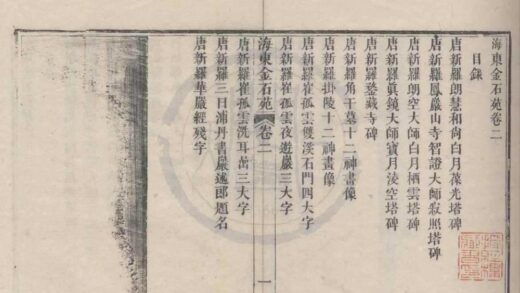 海東金石苑卷二
目錄
唐新羅朗慧和尚白月葆光塔碑
唐新羅鳳巖山寺智證大師寂照塔碑
唐新羅朗空大師白月栖雲塔碑
唐新羅眞鏡大師寶月淩空塔碑
唐新羅鍪藏寺碑
唐新羅角干墓十二神畫像
唐新羅掛陵十二神畫像
唐新羅崔孤雲雙溪石門四大字
唐新羅崔孤雲夜遊巖三大字
海東金石苑 卷二 一
唐新羅崔孤雲洗耳嵒三大字
唐新羅三日浦丹書巖逸郎題名
唐新羅華嚴經殘字